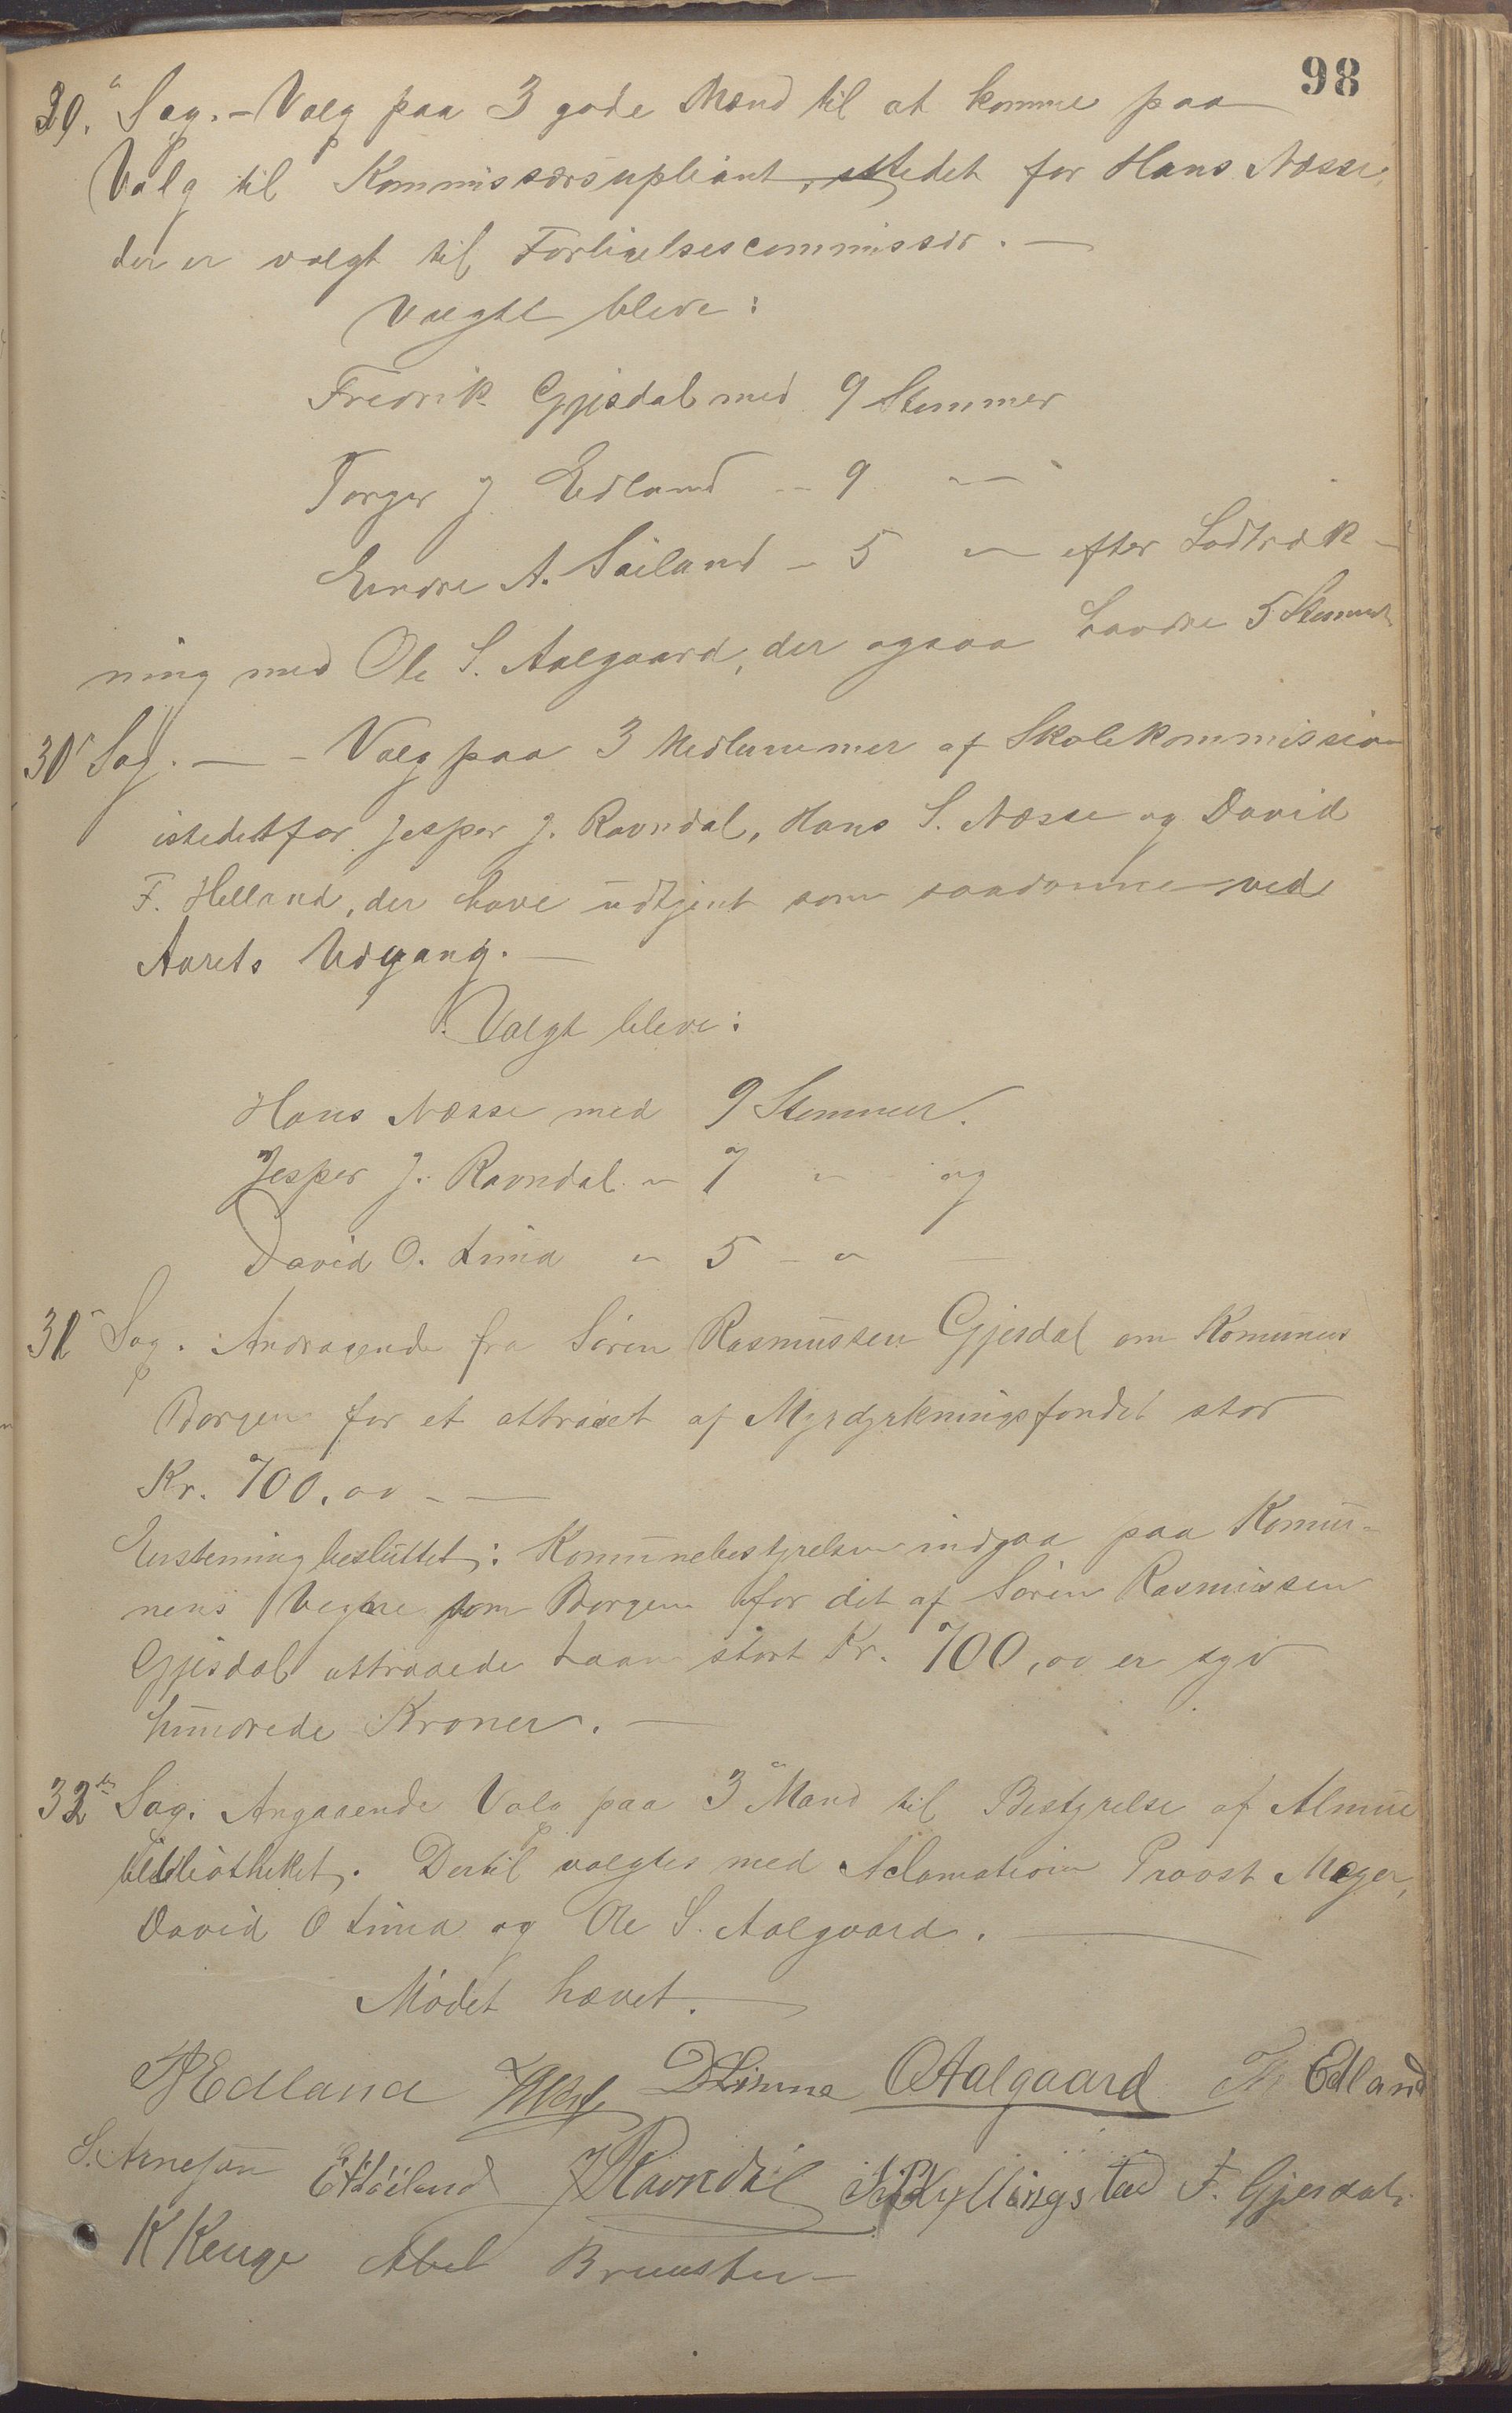 98
29. Sag. - Valg paa 3 gode Mænd til at komme paa
Valg til Kommissærsupliant, istedet for Hans Næsse,
der er valgt til Forligelsescommissær. —
Valgte bleve:
Fredrik Gjesdal med 9 Stemmer
Torger J. Edland - 9 —
Endre A. Søiland - 5 — efter Lodtræk-
ning med Ole S. Aalgaard, der ogsaa havde 5 Stemmer
30 Sag. — - Valg paa 3 Medlemmer af Skolekommission
istedetfor Jesper J. Ravndal, Hans S. Næsse og David
F. Helland, der have udtjent som saadanne ved
Aarets Udgang. —
Valgt bleve:
Hans Næsse med 9 Stemmer.
Jesper J. Ravndal " 7 " og
David O. Lima " 5 - "
31 Sag. Andragende fra Søren Rasmussen Gjesdal om Komunens
Borgen for et attraaet af Myrdyrkningsfondet stor
Kr. 700,00 - —
Enstemmig besluttet: Komunebestyrelsen indgaa paa Komu-
nens Vegne som Borgen for det af Søren Rasmussen
Gjesdal attraaede Laan stort Kr. 700,00 er syv
hundrede Kroner. —
32te Sag. Angaaende Valg paa 3 Mand til Bestyrelse af Almue
bibliotheket. Dertil valgtes med Aclamation Provst Meyer,
David O Lima og Ole S. Aalgaard. —
Mødet hævet.
Edland DLimma OAalgaard Edland
S. Arnesen EASøiland JJRavndal Kyllingstad F. Gjesdal.
K Kenge Abel Bruusten